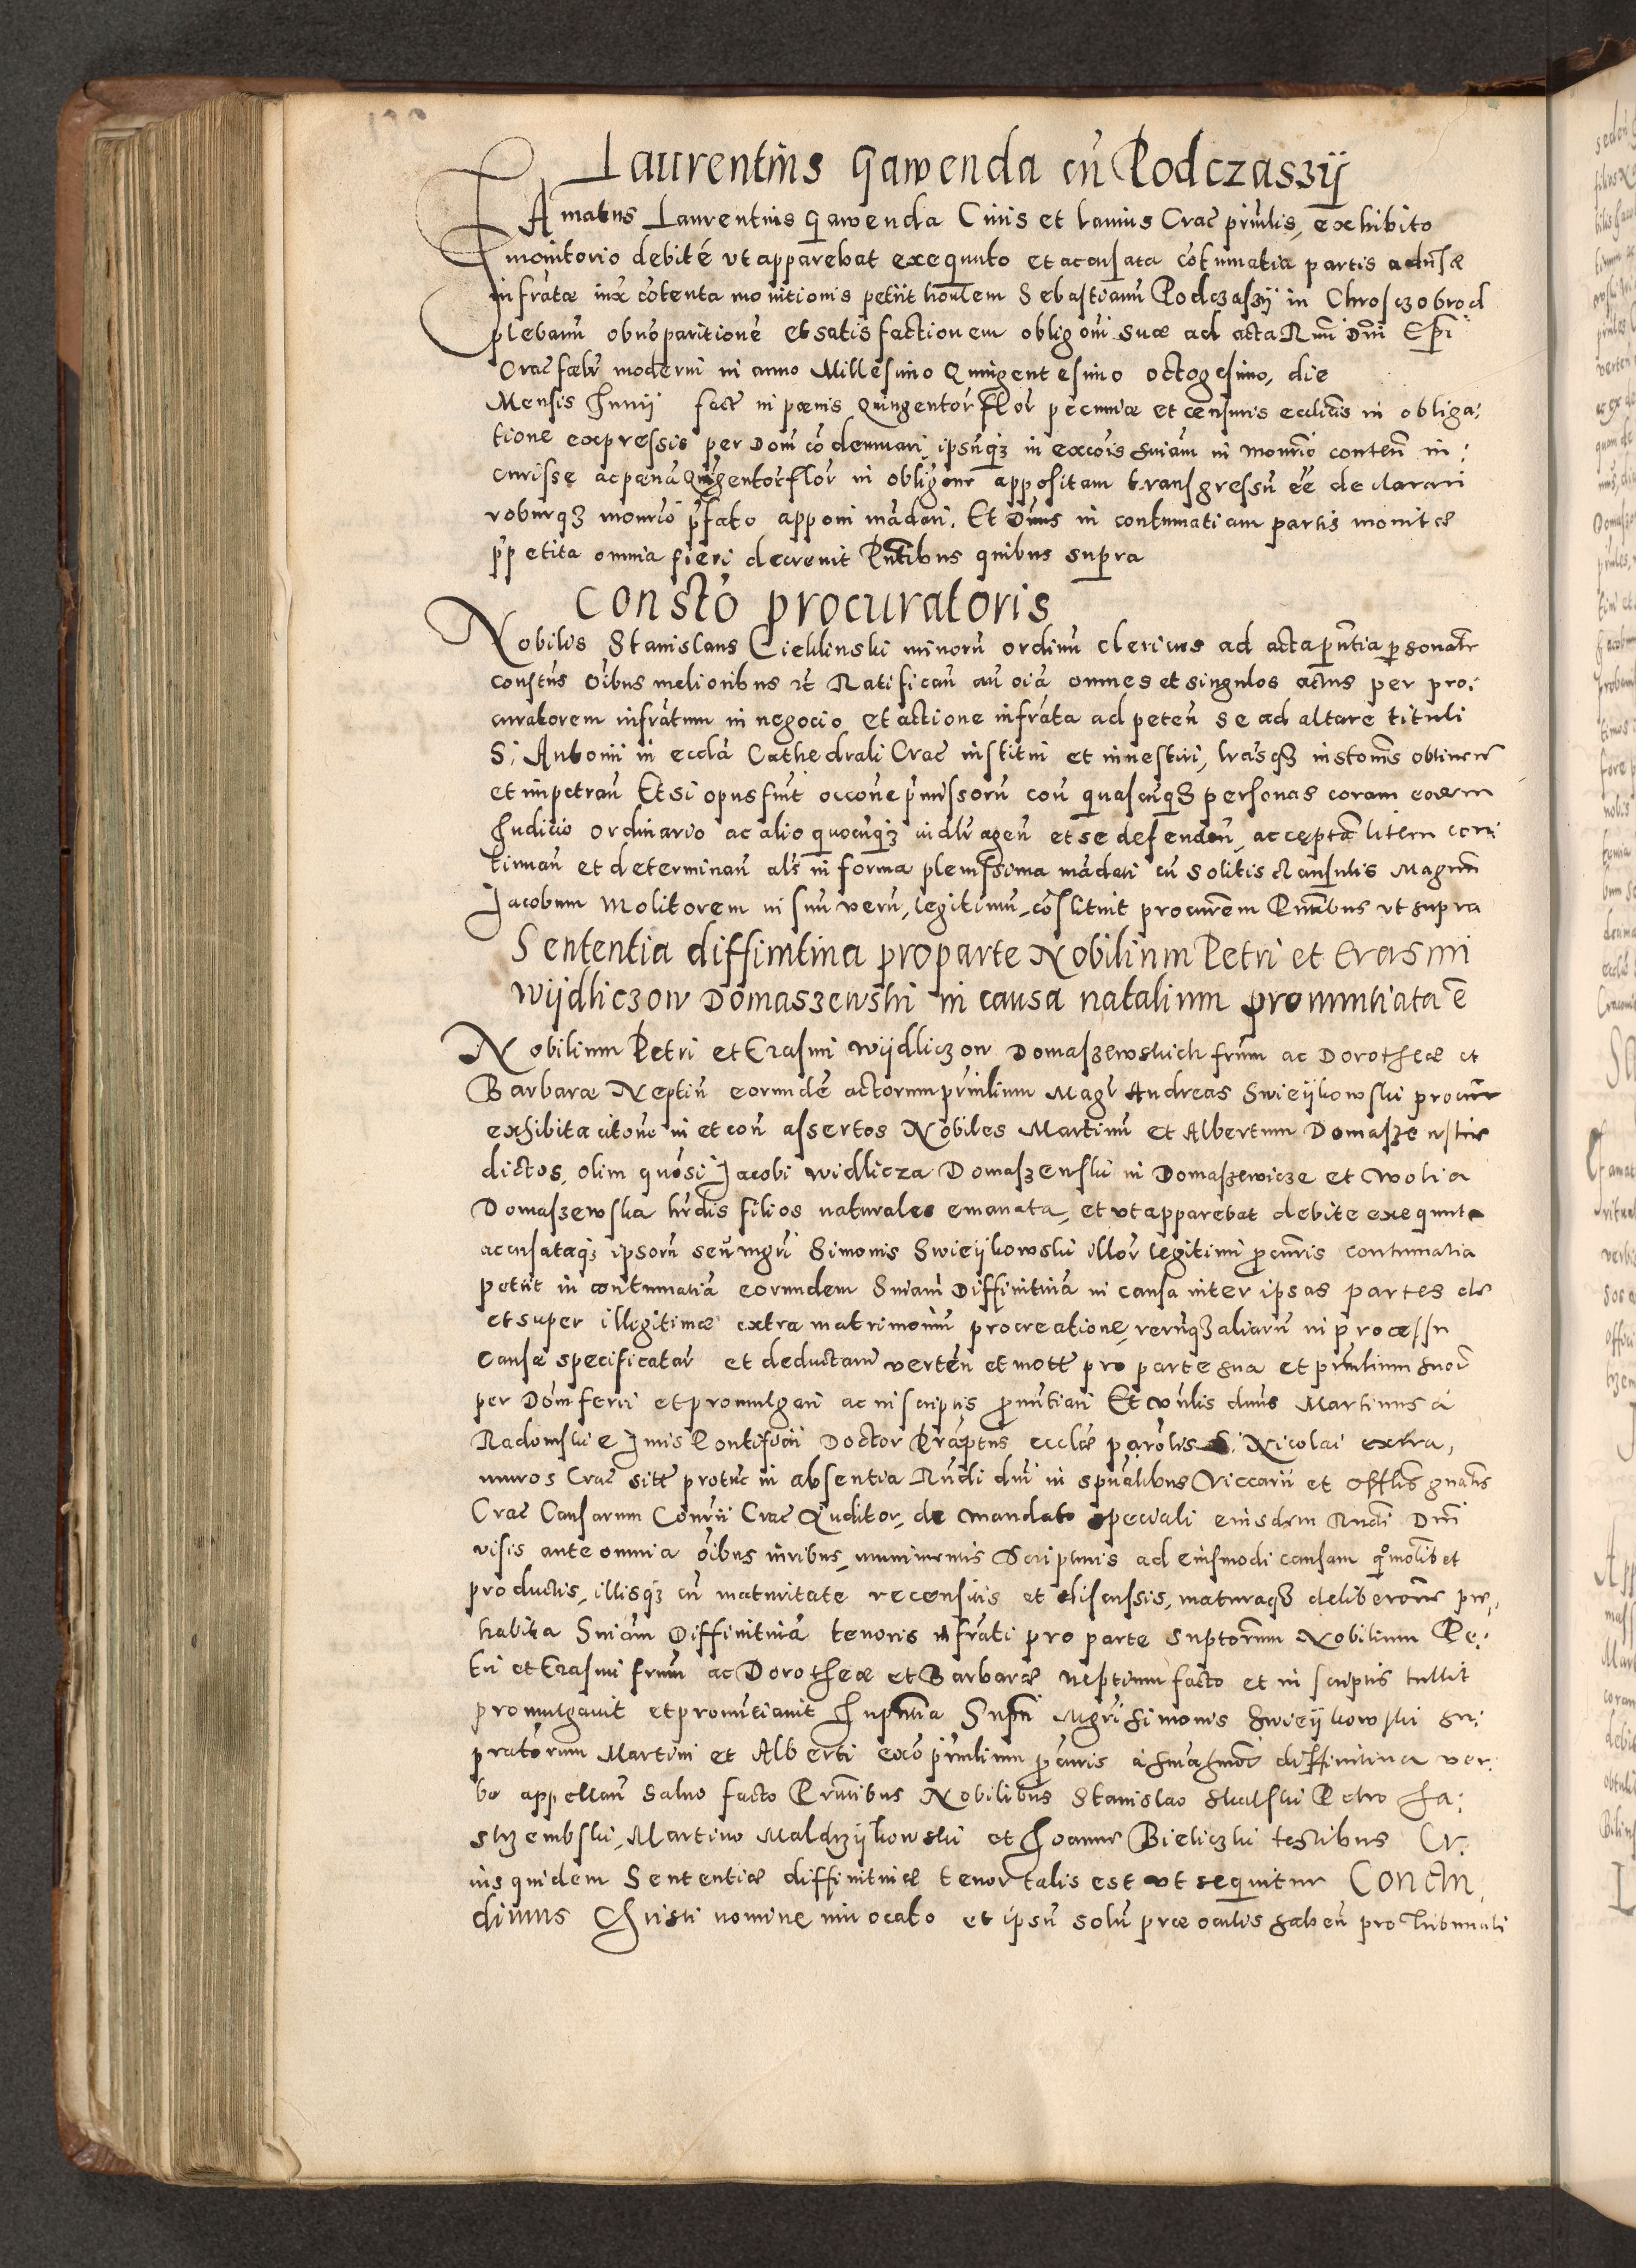 Laurentius Gawenda cũ Podczaszij
Famatus Laurentius Gawenda Ciuis et lanius Crac̃ prĩnlis, exhibito
monitorio debitè vt apparebat exequuto et accusata cõtumatia partis aduersæ
infrãtæ iux̃ cõtenta monitionis petiit honlem Sebastianũ Podczaszij in Chrosczobrod
plebanũ ob nõ paritionẽ et satisfactionem obligonĩ suæ ad acta Rmĩ Dnĩ Epĩ
Crac̃ fœlr̃ moderni in anno Millesimo Quingentesimo octogesimo, die
Mensis Junij fact̃ in pœnis Quingentor̃ flor̃ pecuniæ et censuris ecclĩcis in obliga:
tione expressis per Dom̃ cõdemnari, ipsũq3 in excõis sniam in monrĩo conten̄ in:
currisse ac pœnã Quĩgentor̃ flor̃ in obligone appositam transgressũ eẽ declarari
roburq3 monrĩo p̃fato apponi mãdari. Et Dnus in contumatiam partis monitæ
p̃p̃ etita omnia fieri decreuit Pñtibus quibus supra
Constõ procuratoris
Nobilis Stanislaus Cieklinski minorũ ordinũ clericus ad acta p̃ntia p̃sonalr̃
constus oĩbus melioribus et̃ Ratifican̄ an̄ oiã omnes et singulos actus per pro:
curatorem infrãtum in negocio et actione infrãta ad peten̄ se ad altare tituli
S: Antonii in ecclã Cathedrali Crac̃ institui et inuestiri, lrãsq3 instonĩs obtinere
et impetran̄ Et si opus fuĩt occõne p̃missorũ con̄ quascũq3 personas coram eodem
Judicio ordinario ac alio quocũq3 iudlr̃ agen̄ et se defenden̄, acceptã litem con:
tinuan̄ et determinan̄ als̃ in forma plenissima mãdati cũ solitis clausulis Magrum
Jacobum Molitorem in suũ verũ, legitimũ cõstituit procurẽm Pñtibus vt supra
Sententia diffinitiua pro parte Nobilium Petri et Erasmi
Wijdliczow Domaszewski in causa natalium pronuntiata ẽ
Nobilium Petri et Erasmi Wijdliczow Domaszewskich frũm ac Dorotheæ et
Barbaræ Neptiũ eorundẽ actorum prĩnlium Magr̃ Andreas Swieijkowski procur̃
exhibita citõne in et con̄ assertos Nobiles Martinũ et Albertum Domaszewskie
dictos, olim quõsi Jacobi Widlicza Domaszewski in Domaszewicze et Wolia
Domaszewska hr̃dis filios naturales emanata, et vt apparebat debite exequuta
accusataq3 ipsorũ seu mgri Simonis Swieijkowski illor̃ legitimi p̃curis contumatia
petiit in contumatiã eorundem Sniam Diffinitiuã in causa inter ipsas partes de
et super illigitimæ extra matrimoniũ procreatione, rerũq3 aliarũ in processu
causæ specificatar̃ et deductarũ verten̄ et mott̃ pro parte sua et prĩnlium suor̃
per Dom̃ ferri et promulgari ac in scriptis p̃nũtiari Et vn̄lis dnus Martinus à
Radomskie Juris Pontificii Doctor Præp̃tus ecclæ parõlis S: Nicolai extra,
muros Crac̃ sitt̃ protũc in absentia Rndi dnĩ in sp̃ualibus Viccarii et Offl̃is gnalis
Crac̃ Causarum Conrĩi Crac̃ Auditor, de mandato speciali eiusdem Rndi Dnĩ
visis ante omnia oĩbus iuribus, munimentis Scripturis ad eiusmodi causam qᵒmolibet
productis, illisq3 cũ maturitate recensitis et discussis, maturaq3 deliberone præ,
habita Sniam Diffinitiuã tenoris infrãti pro parte suptorum Nobilium Pe:
tri et Erasmi frũm ac Dorotheæ et Barbaræ neptium facto et in scriptis tullit
promulgauit et pronũtiauit In p̃ntia Snĩ Mgri Simonis Swieijkowski su:
pratorum Martini et Alberti ex cõ prĩnlium p̃curis à sniã hmõi diffinitiua ver:
bo appellan̄ Saluo facto Pr̃ntibus Nobilibus Stanislao Skalski Petro Ja:
strzembski, Martino Maldrzijkowski et Joanne Bieliczki testibus Cu:
ius quidem Sententiæ diffinitiuæ tenor talis est vt sequitur Conclu,
dimus Christi nomine inuocato et ipsũ solũ præ oculis haben̄ pro Tribunali